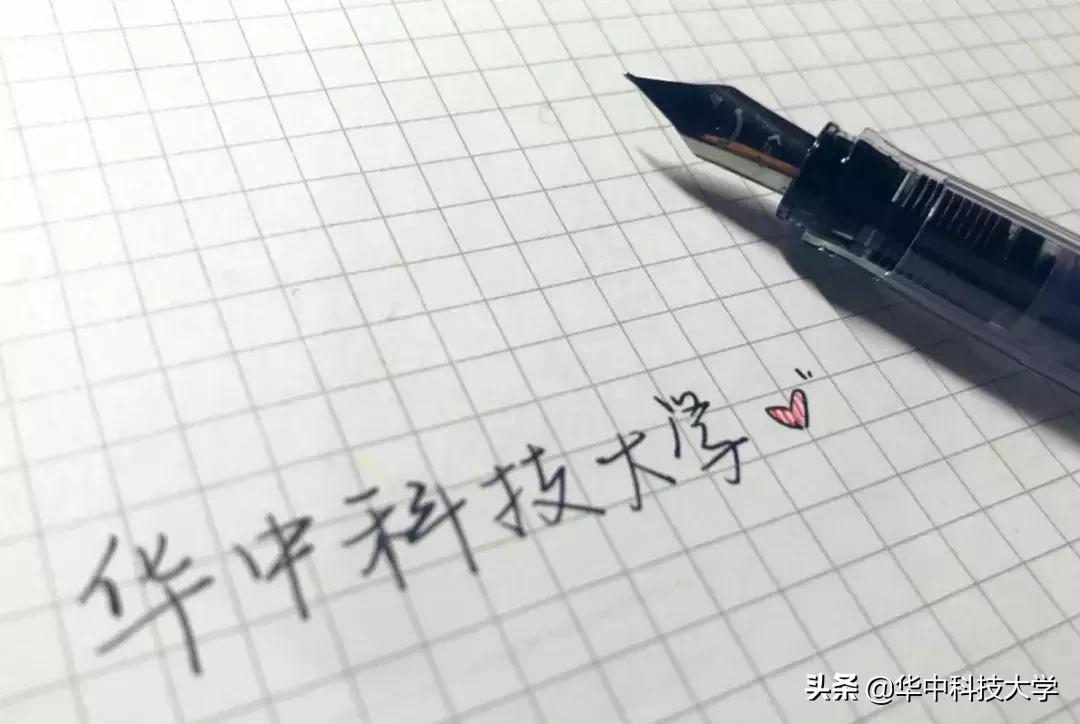 华中科技大学
头条 @华中科技大学